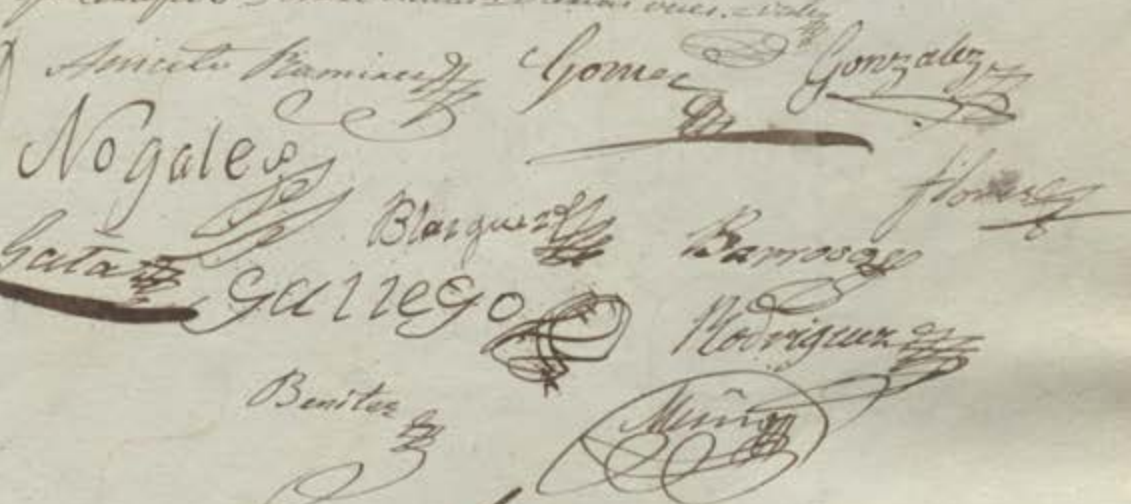 Aniceto Ramirez Gomez Gonzalez
Nogales
Flores
Blazquez Barroso
Gata Gallego
Rodriguez
Benitez Muñoz